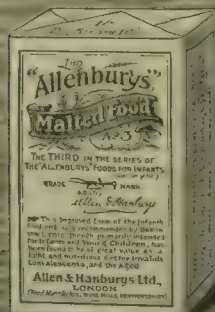 The
"Allenburys"
Malted Food
No 3
THE THIRD IN THE SERIES OF
THE "ALLENBURYS" FOODS FOR INFANTS
TRADE MARK
Allen & Hanburys
This Improved form of the Infants
Food
primarily intended
for Infants and Young Children, has
been found to be of great value as a
light and nutritious diet for Invalids
Convalescents, and the Aged
Allen & Hanburys Ltd.,
LONDON